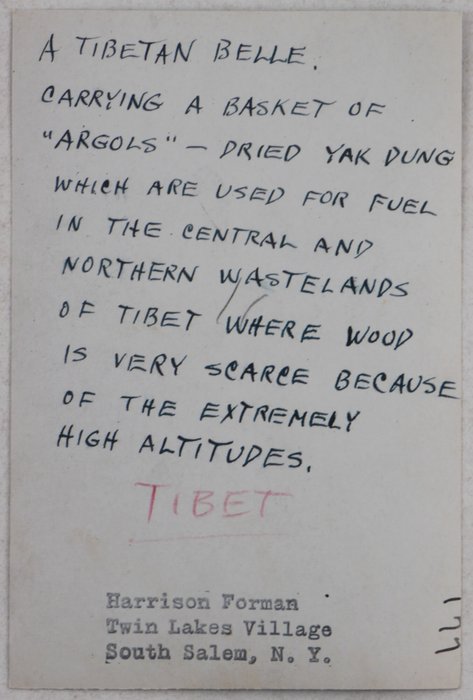 A TIBETAN BELLE.
CARRYING A BASKET OF
"ARGOLS" — DRIED YAK DUNG
WHICH ARE USED FOR FUEL
IN THE CENTRAL AND
NORTHERN WASTELANDS
OF TIBET WHERE WOOD
IS VERY SCARCE BECAUSE
OF THE EXTREMELY
HIGH ALTITUDES.
TIBET
Harrison Forman
Twin Lakes Village
South Salem, N. Y.